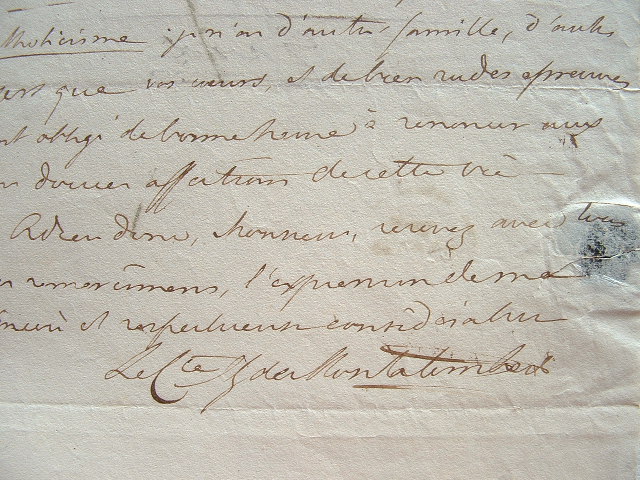 tholicisme : je n'ai d'autre famille, d'autre
que vos coeurs, et de bien rudes épreuves
obligé de bonne heure à renoncer aux
douces affections de cette vie
Adieu donc, Monsieur, recevez avec tous
remerciemens, l'expression de ma
et respectueuse considération
Le Cte de Montalembert